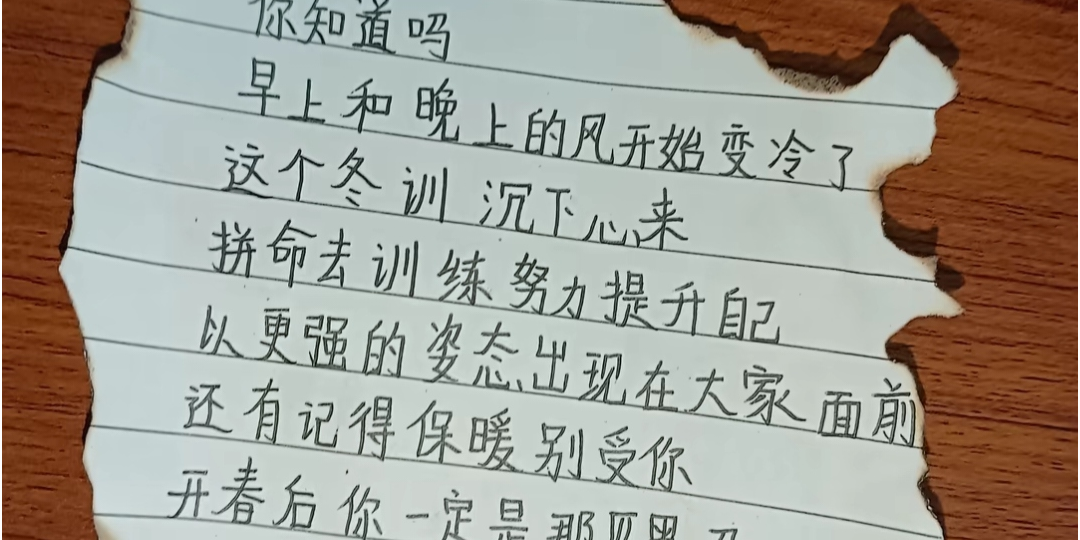 你知道吗
早上和晚上的风开始变冷了
这个冬训 沉下心来
拼命去训练努力提升自己
以更强的姿态出现在大家面前
还有记得保暖别受你
开春后你一定是那匹黑马